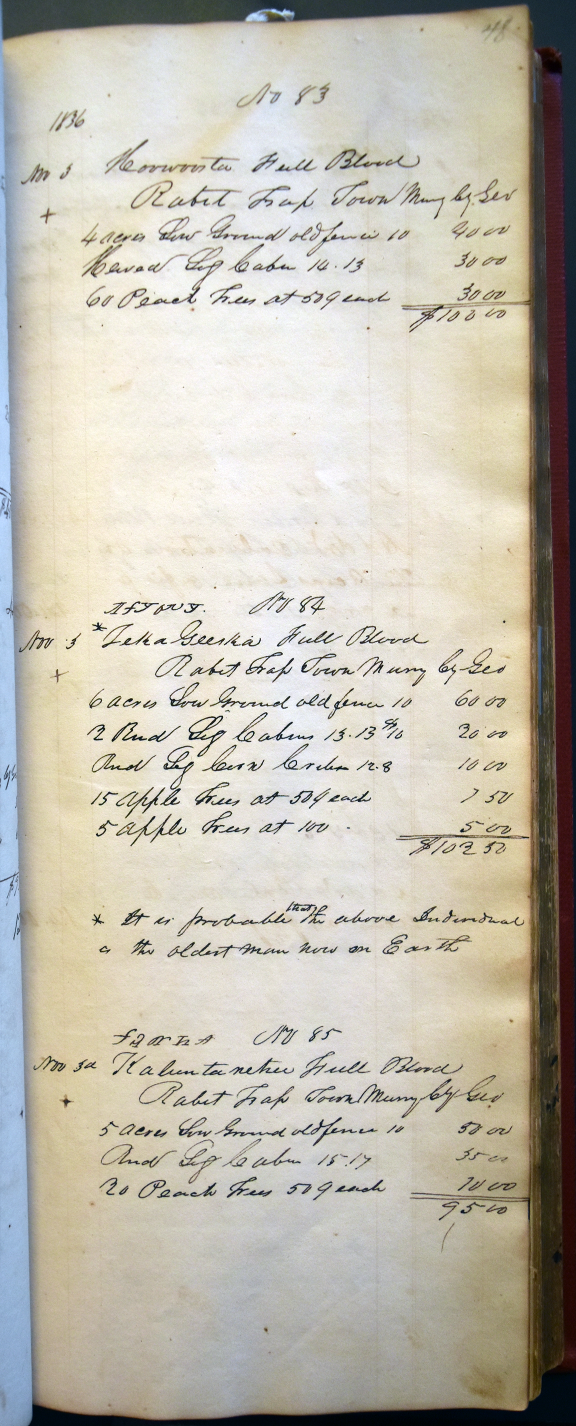 48
No 83
1836
Nov 3 Full Blood
+ Rabit Trap Town Murry Cy Geo
4 acres Low Ground old fence 10 40 00
Hewed Log Cabin 14.13 30 00
60 Peach Trees at 50¢ each 30 00
$100 00
No 84
Nov 3 * Teka Geeska Full Blood
+ Rabit Trap Town Murry Cy Geo
6 acres Low Ground old fence 10 60 00
2 Rnd Log Cabins 13.13 $10 20 00
Rnd Log Corn Crib 12.8 10 00
15 Apple Trees at 50¢ each 7 50
5 Apple Trees at 100 5 00
$102 50
* It is probable that the above Individual
is the oldest man now on Earth
No 85
Nov 3d Full Blood
+ Rabit Trap Town Murry Cy Geo
5 acres Low Ground old fence 10 50 00
Rnd Log Cabin 15.17 35 00
20 Peach Trees 50¢ each 10 00
95 00